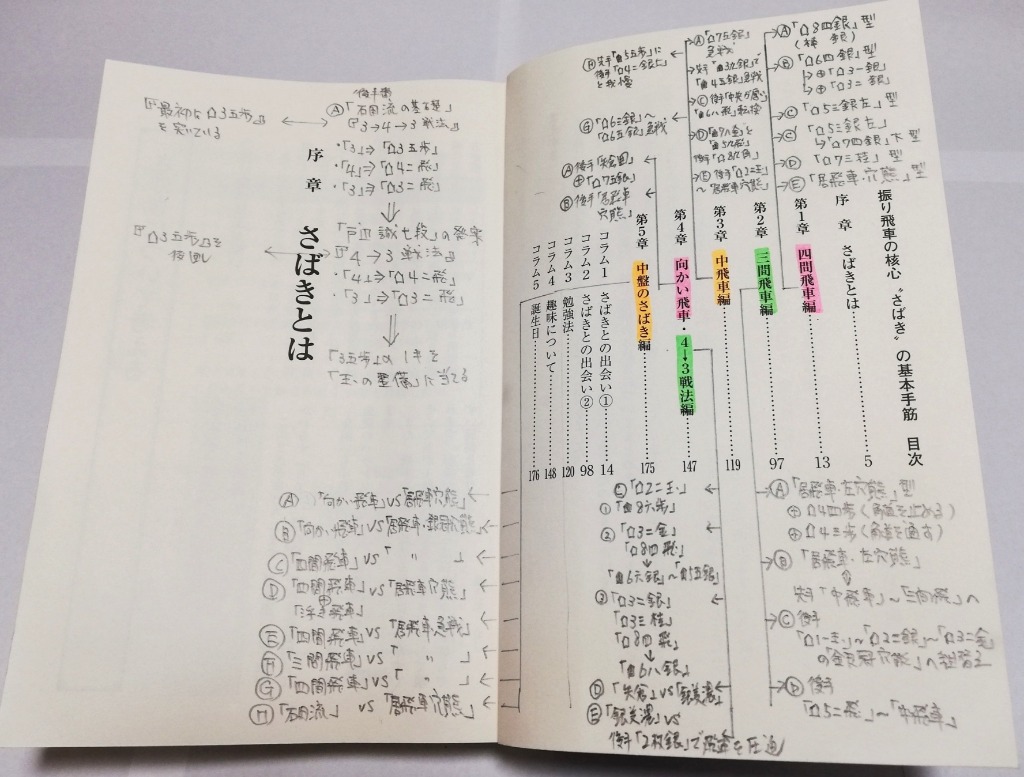 振り飛車の核心〝さばき〟の基本手筋 目次
序章 さばきとは……5
第1章 四間飛車編……13
第2章 三間飛車編……97
第3章 中飛車編……119
第4章 向かい飛車・4→3戦法編……147
第5章 中盤のさばき編……175
コラム1 さばきとの出会い①……14
コラム2 さばきとの出会い②……98
コラム3 勉強法……120
コラム4 趣味について……148
コラム5 誕生日……176
Ⓐ「☖8四銀」型
(棒銀)
Ⓑ「☖6四銀」型
→⊕「☖3一銀」
→⊕「☖3二銀」
Ⓒ「☖5三銀左」型
Ⓒ'「☖5三銀左」
→「☖7四銀」下型
Ⓓ「☖7三桂」型
Ⓔ「居飛車穴熊」型
Ⓐ「☖7五銀」
急戦
先手「☗3九銀」で
「☗4五銀」急戦
Ⓒ後手「中央が厚い」
「☗6八飛」転換
Ⓓ「☗7八金」と
「☗5九飛」
Ⓔ後手「☖2二玉」
〜「居飛車穴熊」
先手「☗5五歩」に
後手「☖4二銀」と
我慢
Ⓖ「☖6三銀」〜
「☖6五銀」急戦
Ⓐ後手「矢倉囲」
⊕「☖7五銀」
Ⓑ後手「居飛車
穴熊」
Ⓐ「居飛車・左穴熊」型
⊕☖4四歩(角道を止める)
⊕☖4三歩(角道を通す)
Ⓑ「居飛車・左穴熊」
先手「中飛車」〜「三間飛」へ
Ⓒ後手
「☖1一玉」〜「☖2二銀」〜「☖3二金」
の「銀冠穴熊」へ組替え
Ⓓ後手
「☖5二飛」〜「中飛車」
Ⓒ「☖2二玉」
①「☗8六歩」
②「☖3二金」
「☖8四飛」
「☗6六銀」〜「☖5五銀」
③「☖3二銀」
「☖3三桂」
「☖8四飛」
「☗6八銀」
Ⓓ「矢倉」VS「銀美濃」
Ⓔ「銀美濃」VS
後手「2枚銀」で飛車を圧迫
序章
さばきとは
後手番
Ⓐ「石田流の基本」
『3→4→3戦法』
・「3」⇒「☖3五歩」
・「4」⇒「☖4二飛」
・「3」⇒「☖3二飛」
『最初に☖3五歩』
を突いている
「戸辺誠七段」の発案
『4→3戦法』
・「4」⇒「☖4二飛」
・「3」⇒「☖3二飛」
『☖3五歩』を
後回し
「3五歩」の1手を
「玉の整備」に当てる
Ⓐ「向かい飛車」VS「居飛車穴熊」
Ⓑ「向かい飛車」VS「居飛車・銀冠穴熊」
Ⓒ「四間飛車」VS「 〃 」
Ⓓ「四間飛車」VS「居飛車穴熊」
⊕
「浮き飛車」
Ⓔ「四間飛車」VS「居飛車急戦」
Ⓕ「三間飛車」VS「 〃 」
Ⓖ「四間飛車」VS「 〃 」
Ⓗ「石田流」VS「居飛車穴熊」